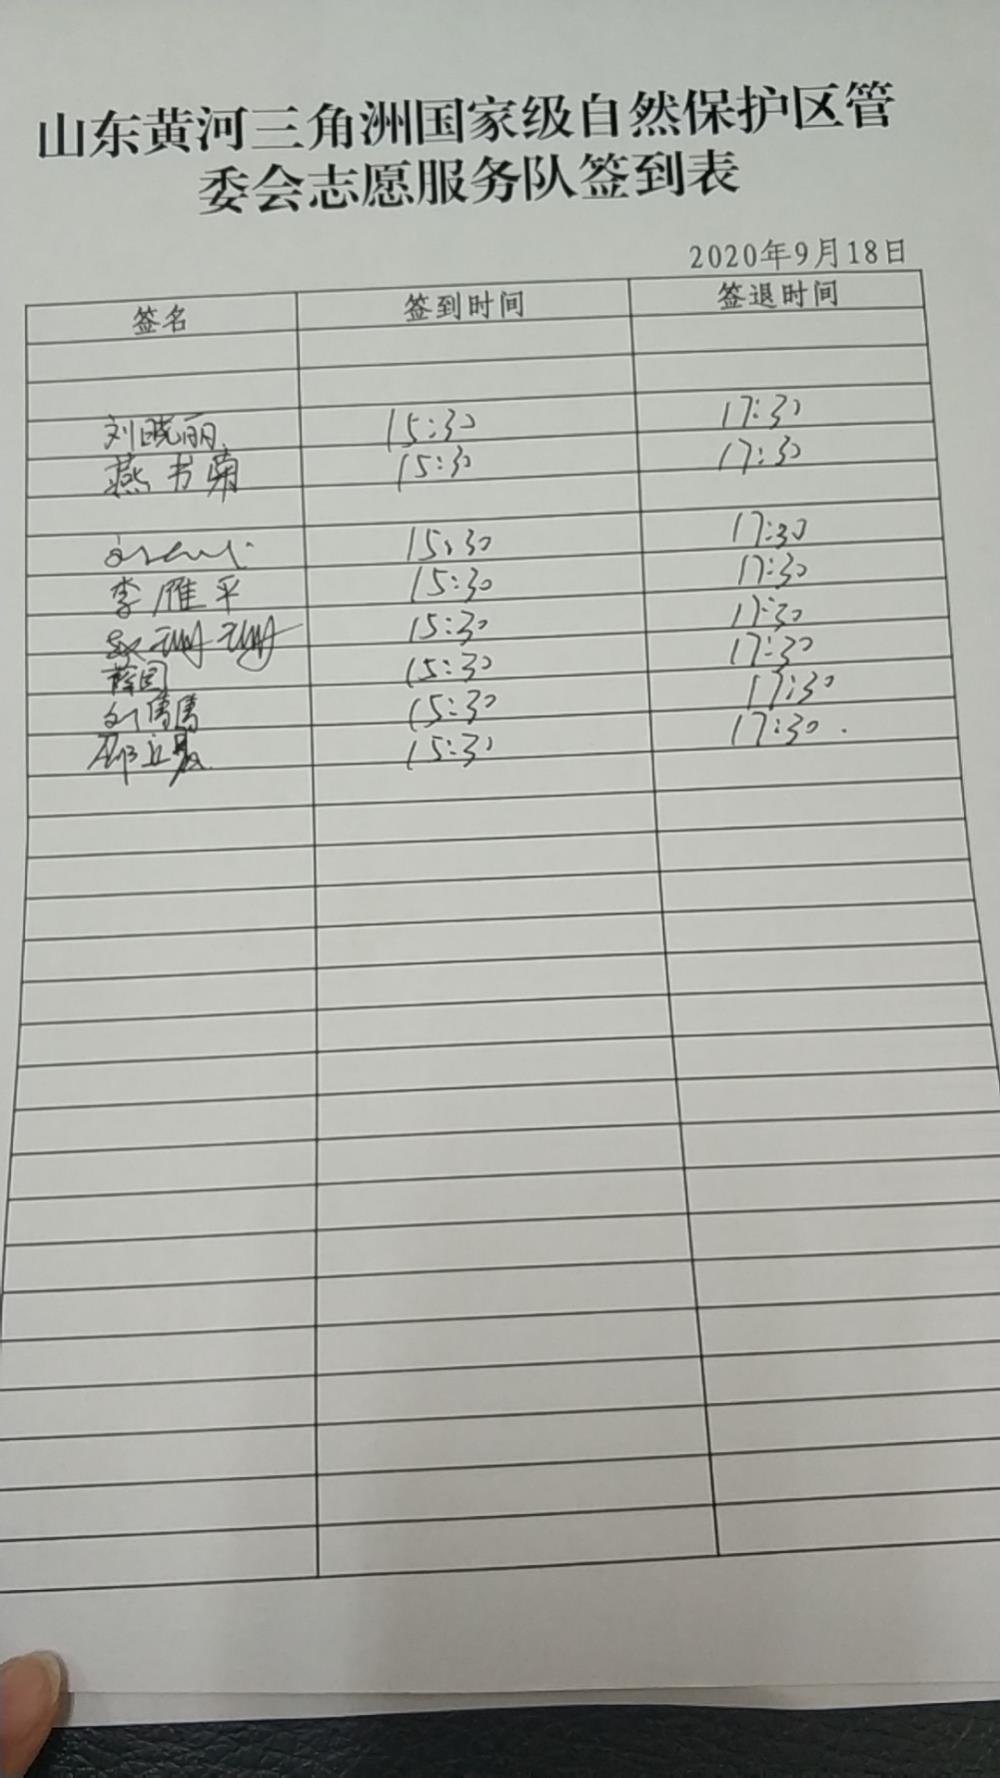 山东黄河三角洲国家级自然保护区管
委会志愿服务队签到表
2020年9月18日
签名 签到时间 签退时间
刘晓丽 15:30 17:30
燕书荣 15:30 17:30
15:30 17:30
李雁平 15:30 17:30
赵珊珊 15:30 17:30
薛园 15:30 17:30
刘倩倩 15:30 17:30
邵立晨 15:30 17:30